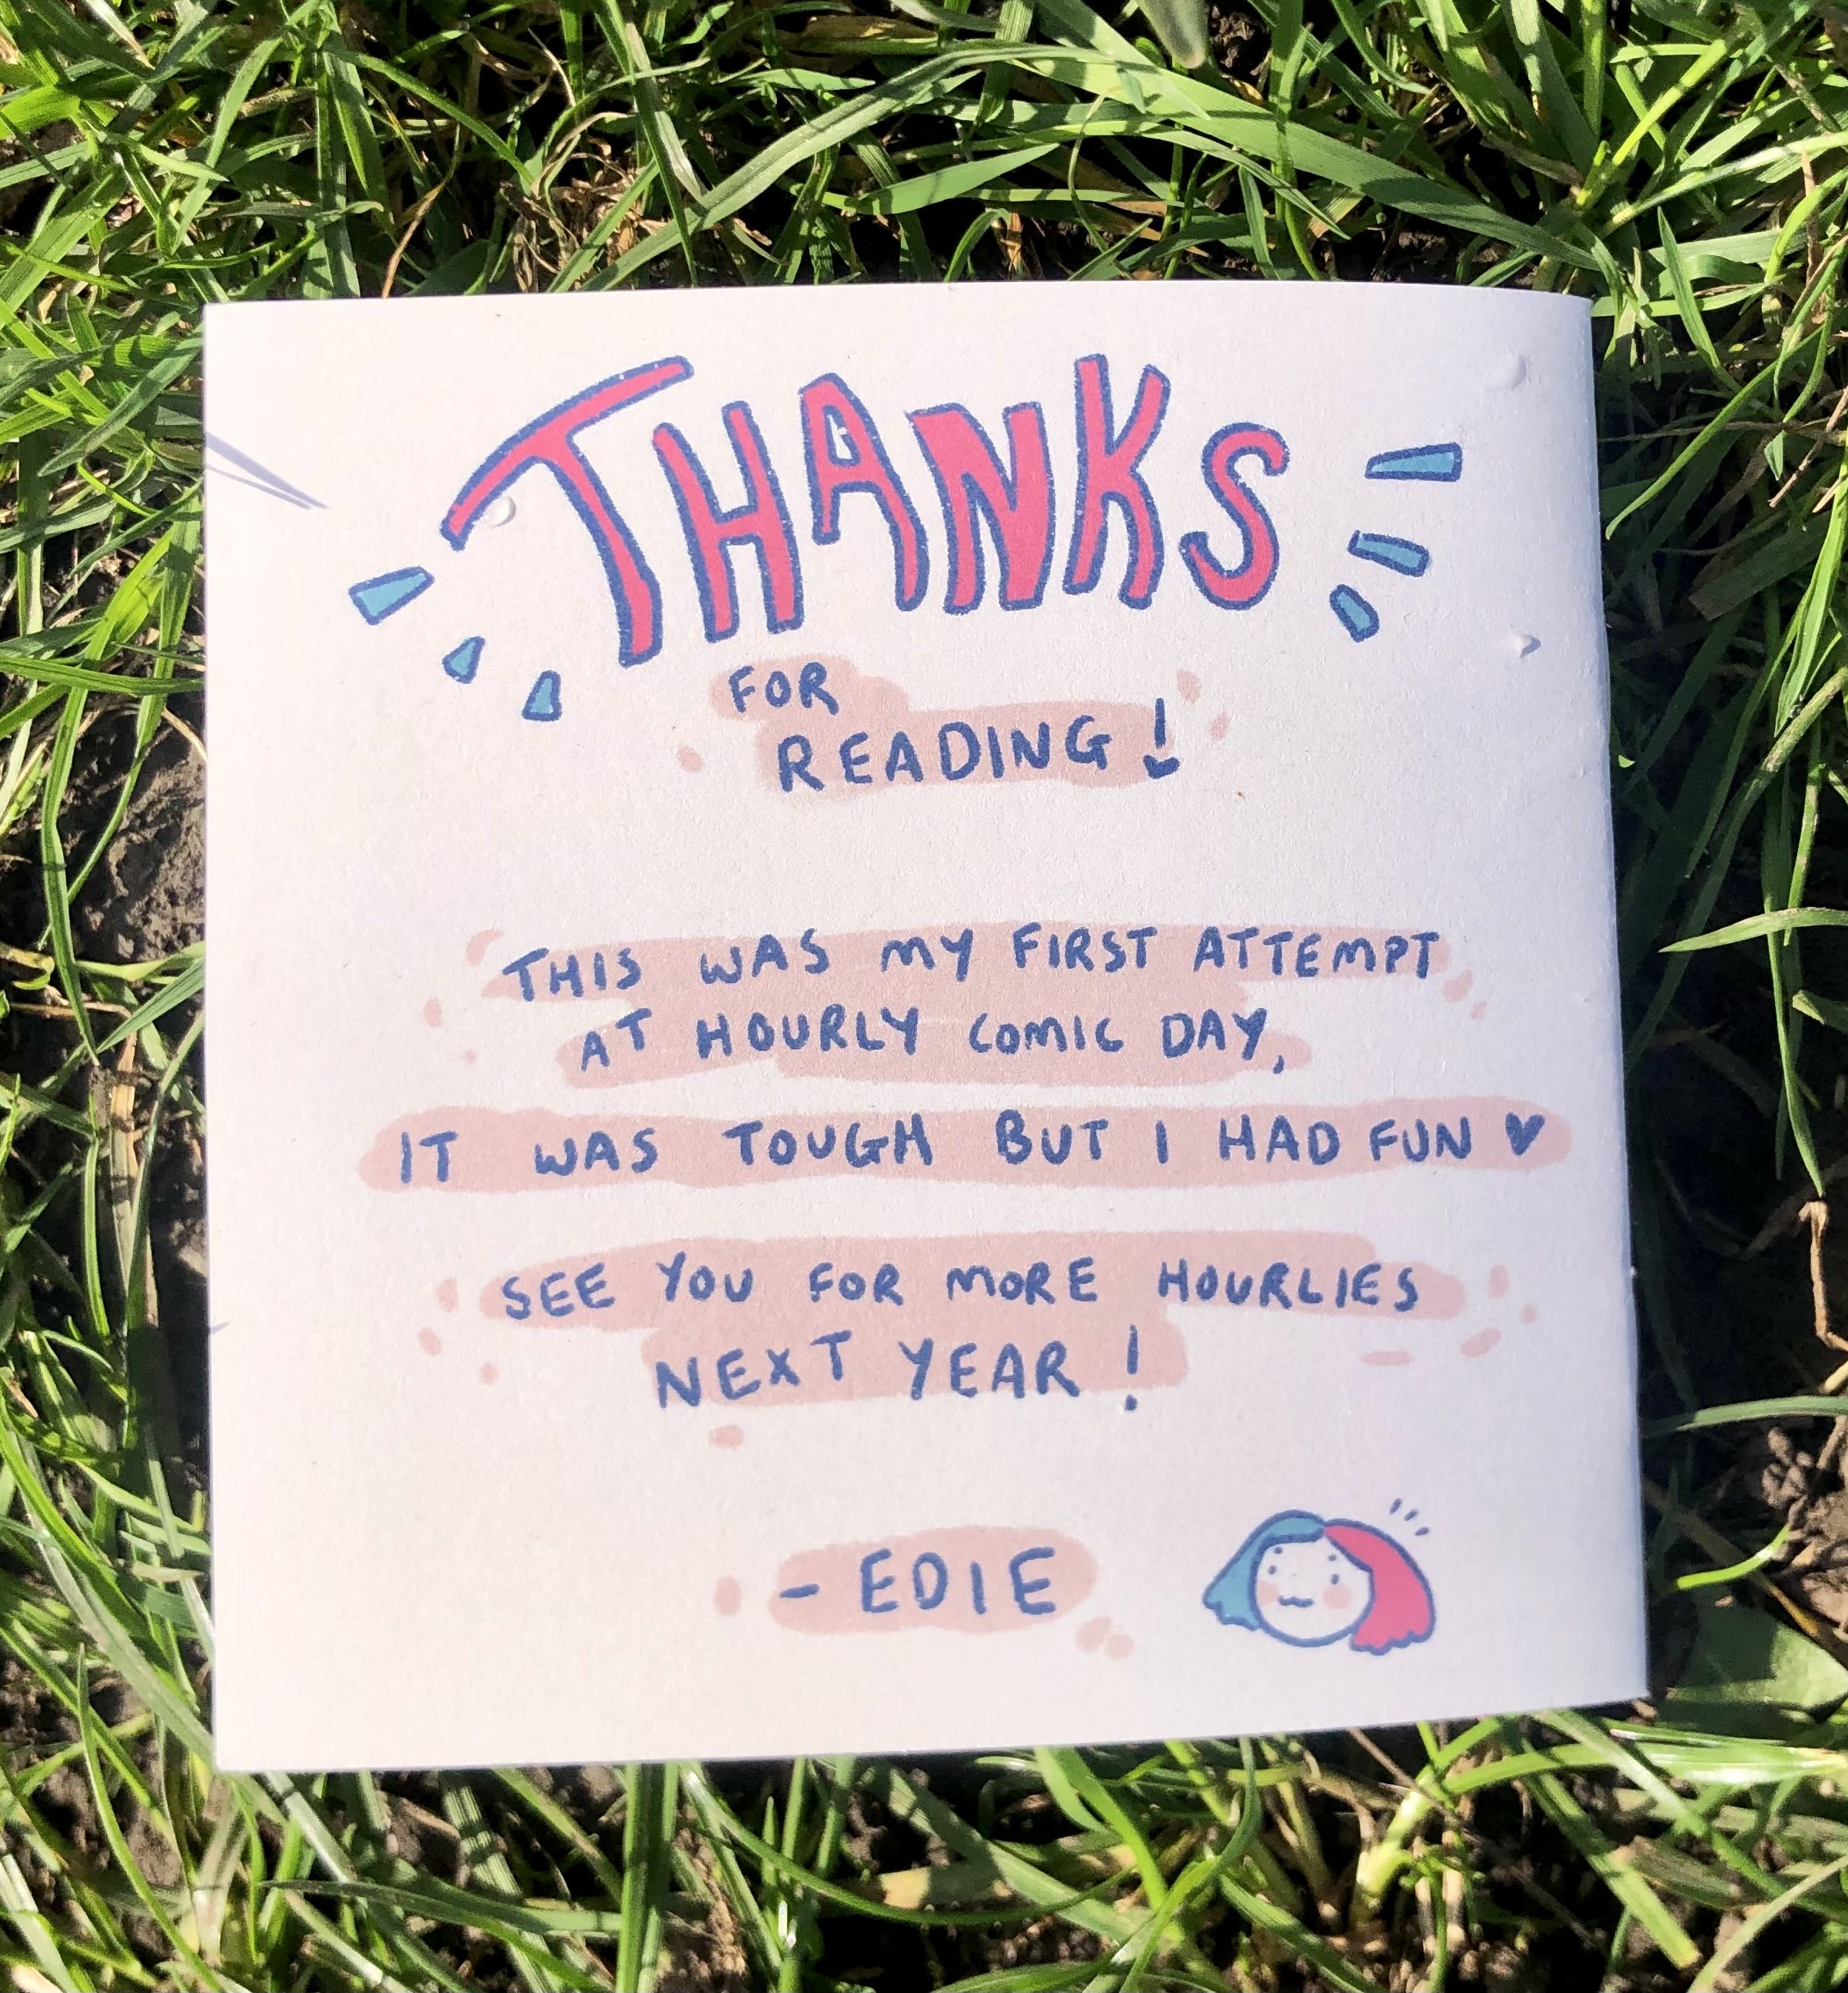 THANKS
FOR
READING!
THIS WAS MY FIRST ATTEMPT
AT HOURLY COMIC DAY,
IT WAS TOUGH BUT I HAD FUN ♥
SEE YOU FOR MORE HOURLIES
NEXT YEAR!
- EDIE